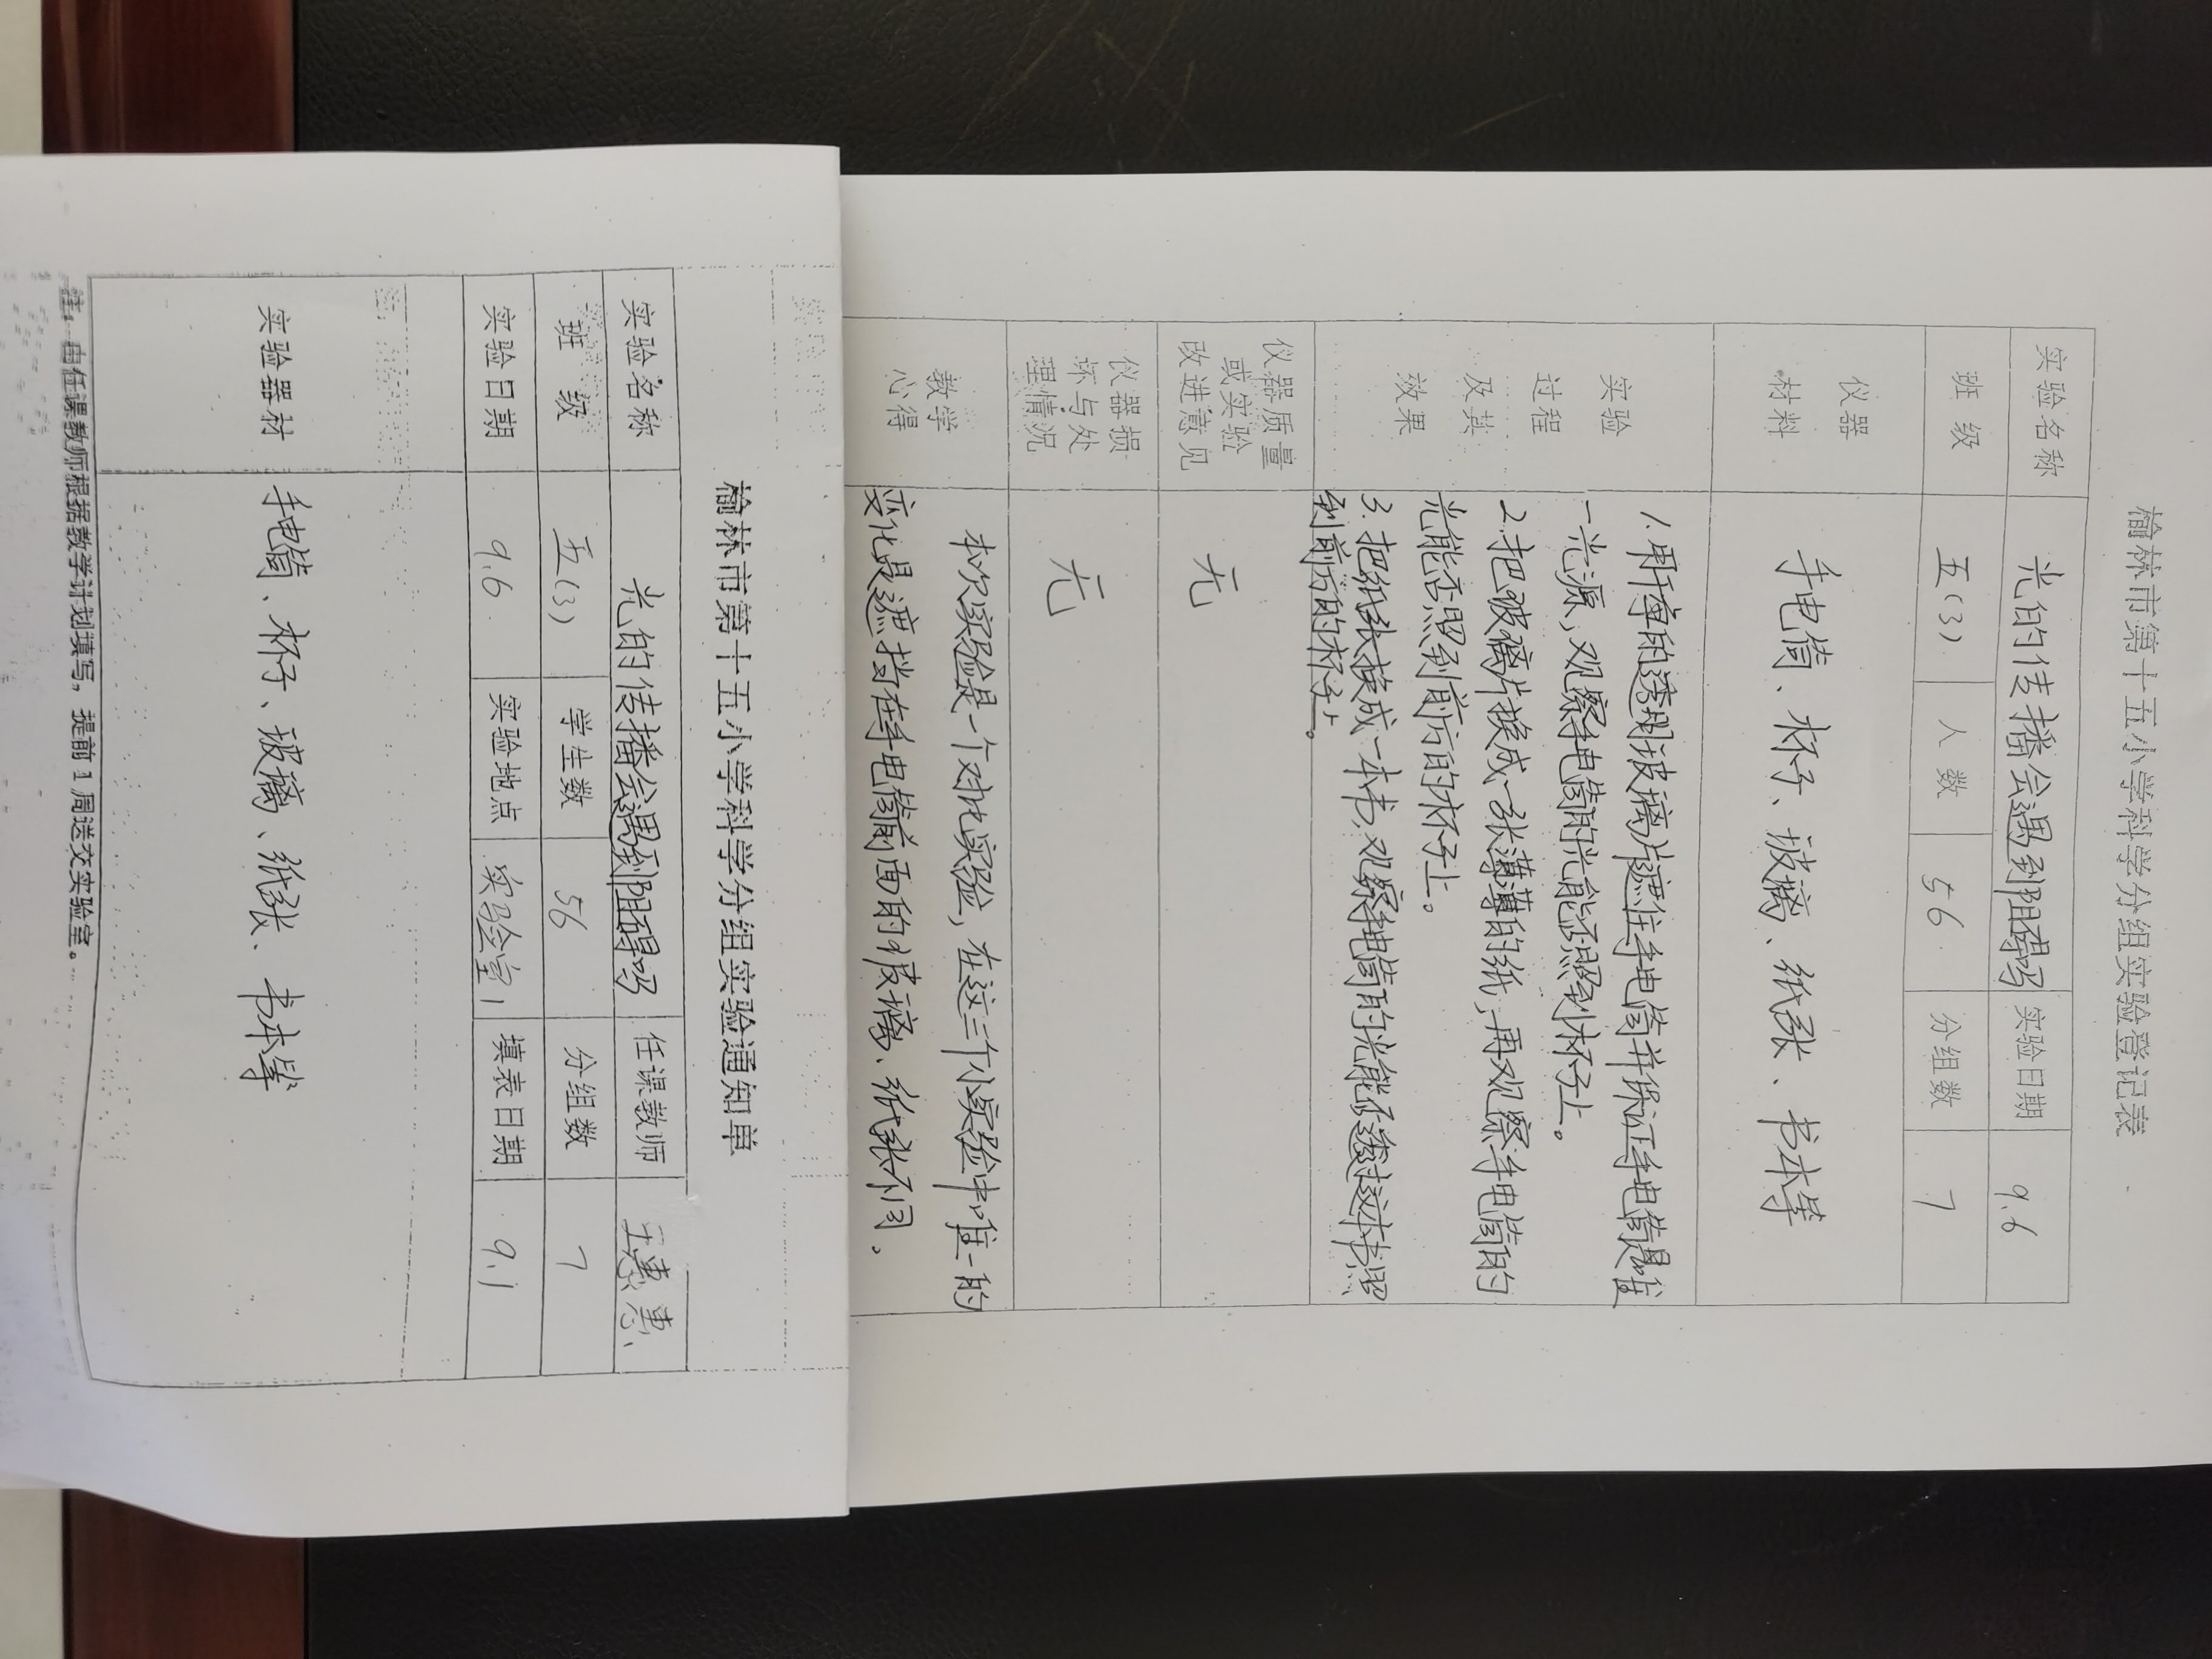 榆林市第十五小学科学分组实验登记表
实验名称 光的传播会遇到阻碍吗 实验日期 9.6
班级 五(3) 人数 56 分组数 7
仪器材料 手电筒、杯子、玻璃、纸张、书本等
实验过程及其效果
1.用厚的透明玻璃片遮住手电筒并保证手电筒是唯
一光源,观察手电筒的光能否照到杯子上。
2.把玻璃片换成一张薄薄的纸,再观察手电筒的
光能否照到前方的杯子上。
3.把纸张换成一本书,观察手电筒的光能否透过这本书照
到前方的杯子上。
仪器质量或实验改进意见 无
仪器损坏与处理情况 无
教学心得
本次实验是一个对比实验,在这三个小实验中唯一的
变化是遮挡在手电筒前面的玻璃、纸张不同。
榆林市第十五小学科学分组实验通知单
实验名称 光的传播会遇到阻碍吗 任课教师
班级 五(3) 学生数 56 分组数 7
实验日期 9.6 实验地点 实验室1 填表日期 9.1
实验器材 手电筒、杯子、玻璃、纸张、书本等
注:由任课教师根据教学计划填写,提前1周送交实验室。